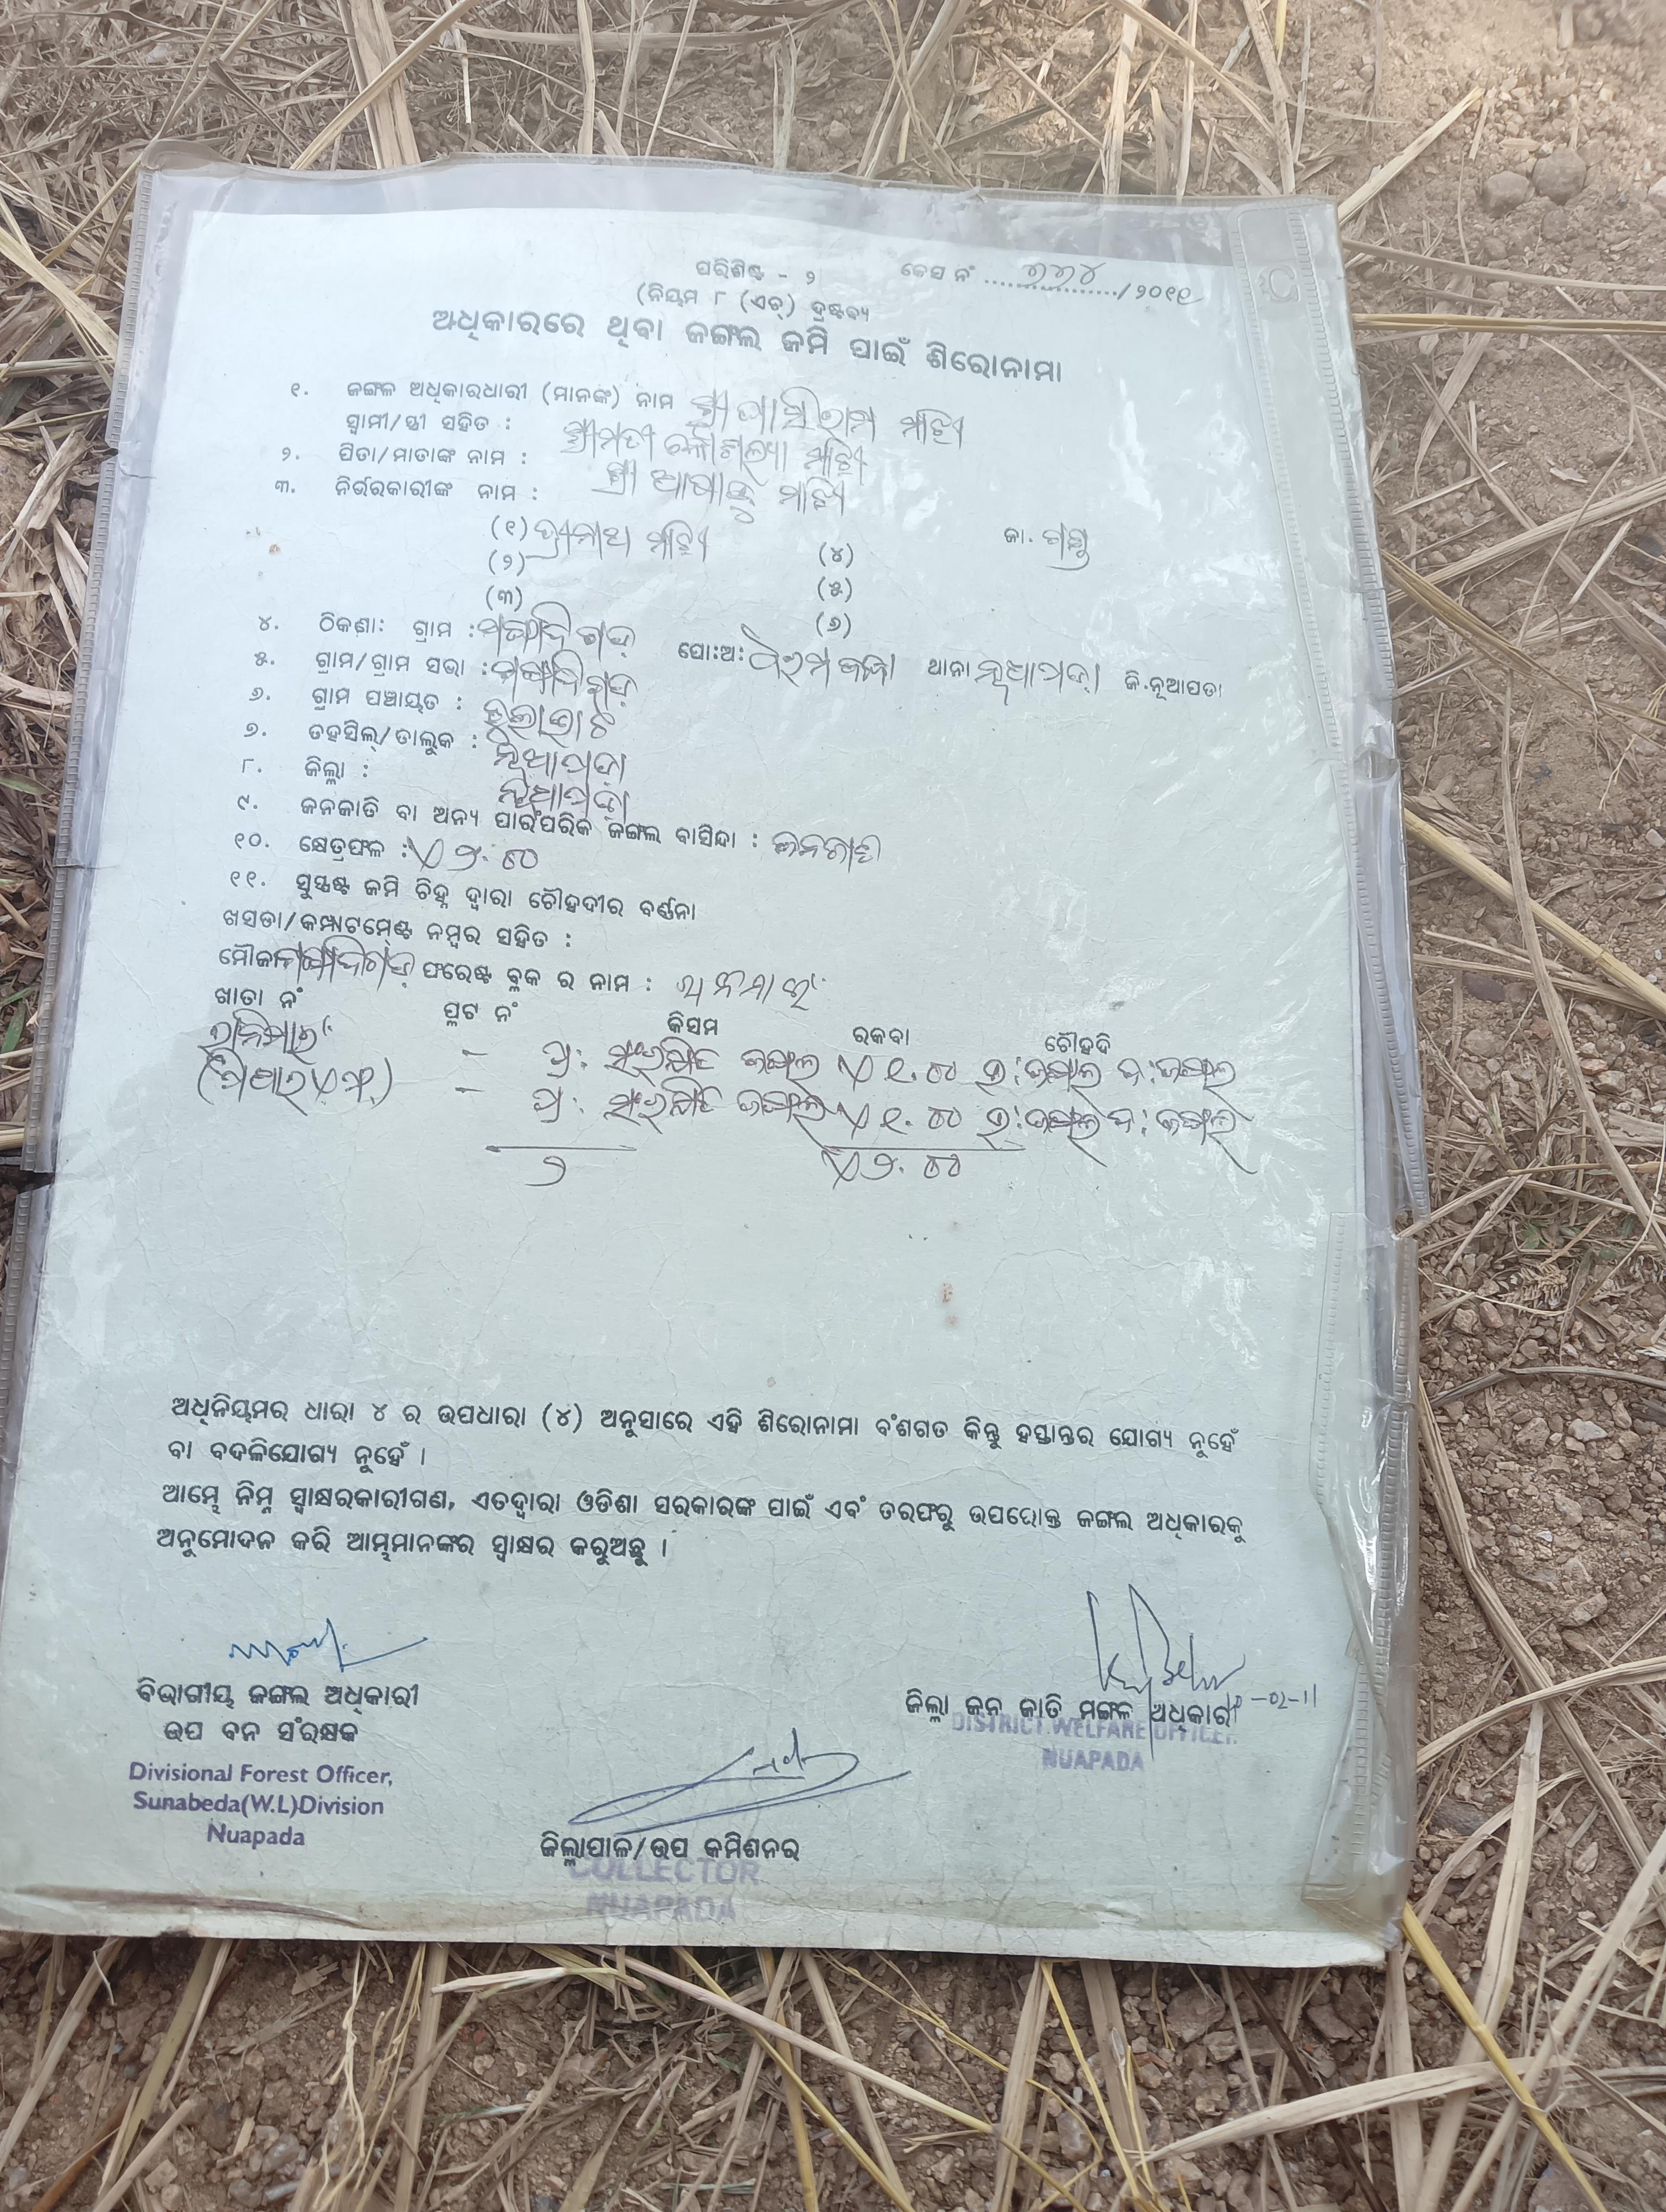 ପରିଶିଷ୍ଟ - ୨ କେସ ନଂ ................../୨୦୧୧
(ନିୟମ ୮ (ଏଚ୍) ଦ୍ରଷ୍ଟବ୍ୟ
ଅଧିକାରରେ ଥିବା ଜଙ୍ଗଲ ଜମି ପାଇଁ ଶିରୋନାମା
୧. ଜଙ୍ଗଳ ଅଧିକାରଧାରୀ (ମାନଙ୍କ) ନାମ ଶ୍ରୀ ମାଝି
ସ୍ୱାମୀ/ସ୍ତ୍ରୀ ସହିତ : ଶ୍ରୀମତୀ କୌଶଲ୍ୟା ମାଝି
୨. ପିତା/ମାତାଙ୍କ ନାମ : ଶ୍ରୀ ମାଝି
୩. ନିର୍ଭରକାରୀଙ୍କ ନାମ :
(୧) ମାଝି (୪) ଜା. ଗଣ୍ଡ
(୨) (୫)
(୩) (୬)
୪. ଠିକଣା: ଗ୍ରାମ : ପୋ:ଅ: ଥାନା ନୂଆପଡ଼ା ଜି.ନୂଆପଡା
୫. ଗ୍ରାମ/ଗ୍ରାମ ସଭା :
୬. ଗ୍ରାମ ପଞ୍ଚାୟତ :
୭. ତହସିଲ୍/ତାଲୁକ : ନୂଆପଡ଼ା
୮. ଜିଲ୍ଲା : ନୂଆପଡ଼ା
୯. ଜନଜାତି ବା ଅନ୍ୟ ପାରଂପରିକ ଜଙ୍ଗଲ ବାସିନ୍ଦା : ଜନଜାତି
୧୦. କ୍ଷେତ୍ରଫଳ : ଏ ୨.୦୦
୧୧. ସୁସ୍ପଷ୍ଟ ଜମି ଚିହ୍ନ ଦ୍ୱାରା ଚୌହଦୀର ବର୍ଣ୍ଣନା
ଖସଡା/କମ୍ପାଟମେଣ୍ଟ ନମ୍ବର ସହିତ :
ମୌଜା ଫରେଷ୍ଟ ବ୍ଳକ ର ନାମ :
ଖାତା ନଂ ପ୍ଳଟ ନଂ କିସମ ରକବା ଚୌହଦି
- ପ୍ର: ସଂରକ୍ଷିତ ଜଙ୍ଗଲ ଏ ୧.୦୦ ଉ:ଜଙ୍ଗଲ ଦ:ଜଙ୍ଗଲ
- ପ୍ର: ସଂରକ୍ଷିତ ଜଙ୍ଗଲ ଏ ୧.୦୦ ଉ:ଜଙ୍ଗଲ ଦ:ଜଙ୍ଗଲ
୨ ଏ ୨.୦୦
ଅଧିନିୟମର ଧାରା ୪ ର ଉପଧାରା (୪) ଅନୁସାରେ ଏହି ଶିରୋନାମା ବଂଶଗତ କିନ୍ତୁ ହସ୍ତାନ୍ତର ଯୋଗ୍ୟ ନୁହେଁ
ବା ବଦଳିଯୋଗ୍ୟ ନୁହେଁ ।
ଆମ୍ଭେ ନିମ୍ନ ସ୍ୱାକ୍ଷରକାରୀଗଣ, ଏତଦ୍ୱାରା ଓଡିଶା ସରକାରଙ୍କ ପାଇଁ ଏବଂ ତରଫରୁ ଉପରୋକ୍ତ ଜଙ୍ଗଲ ଅଧିକାରକୁ
ଅନୁମୋଦନ କରି ଆମ୍ଭମାନଙ୍କର ସ୍ୱାକ୍ଷର କରୁଅଛୁ ।
ବିଭାଗୀୟ ଜଙ୍ଗଲ ଅଧିକାରୀ
ଉପ ବନ ସଂରକ୍ଷକ
Divisional Forest Officer,
Sunabeda(W.L)Division
Nuapada
ଜିଲ୍ଲା ଜନ ଜାତି ମଙ୍ଗଳ ଅଧିକାରୀ
DISTRICT WELFARE OFFICER
NUAPADA
ଜିଲ୍ଲାପାଳ/ଉପ କମିଶନର
COLLECTOR
NUAPADA